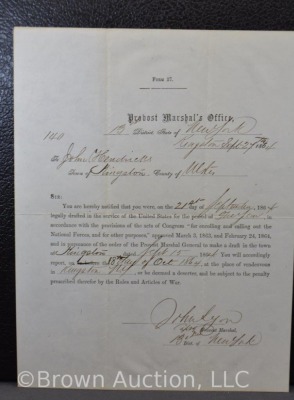 Form 37.
Provost Marshal's Office,
13 District State of New York
140 Kingston Sept 27 1864
To John Hendricks
Town of Kingston, County of Ulster
SIR:
You are hereby notified that you were, on the 21st day of September, 1864,
legally drafted in the service of the United States for the period of One year, in
accordance with the provisions of the acts of Congress "for enrolling and calling out the
National Forces, and for other purposes," approved March 3, 1863, and February 24, 1864,
and in pursuance of the order of the Provost Marshal General to make a draft in the town
of Kingston 1864. You will accordingly
report, on Oct 1864, at the place of rendezvous
in Kingston NY, or be deemed a deserter, and be subject to the penalty
prescribed therefor by the Rules and Articles of War.
Provost Marshal,
13 Dist. of New York
© Brown Auction, LLC